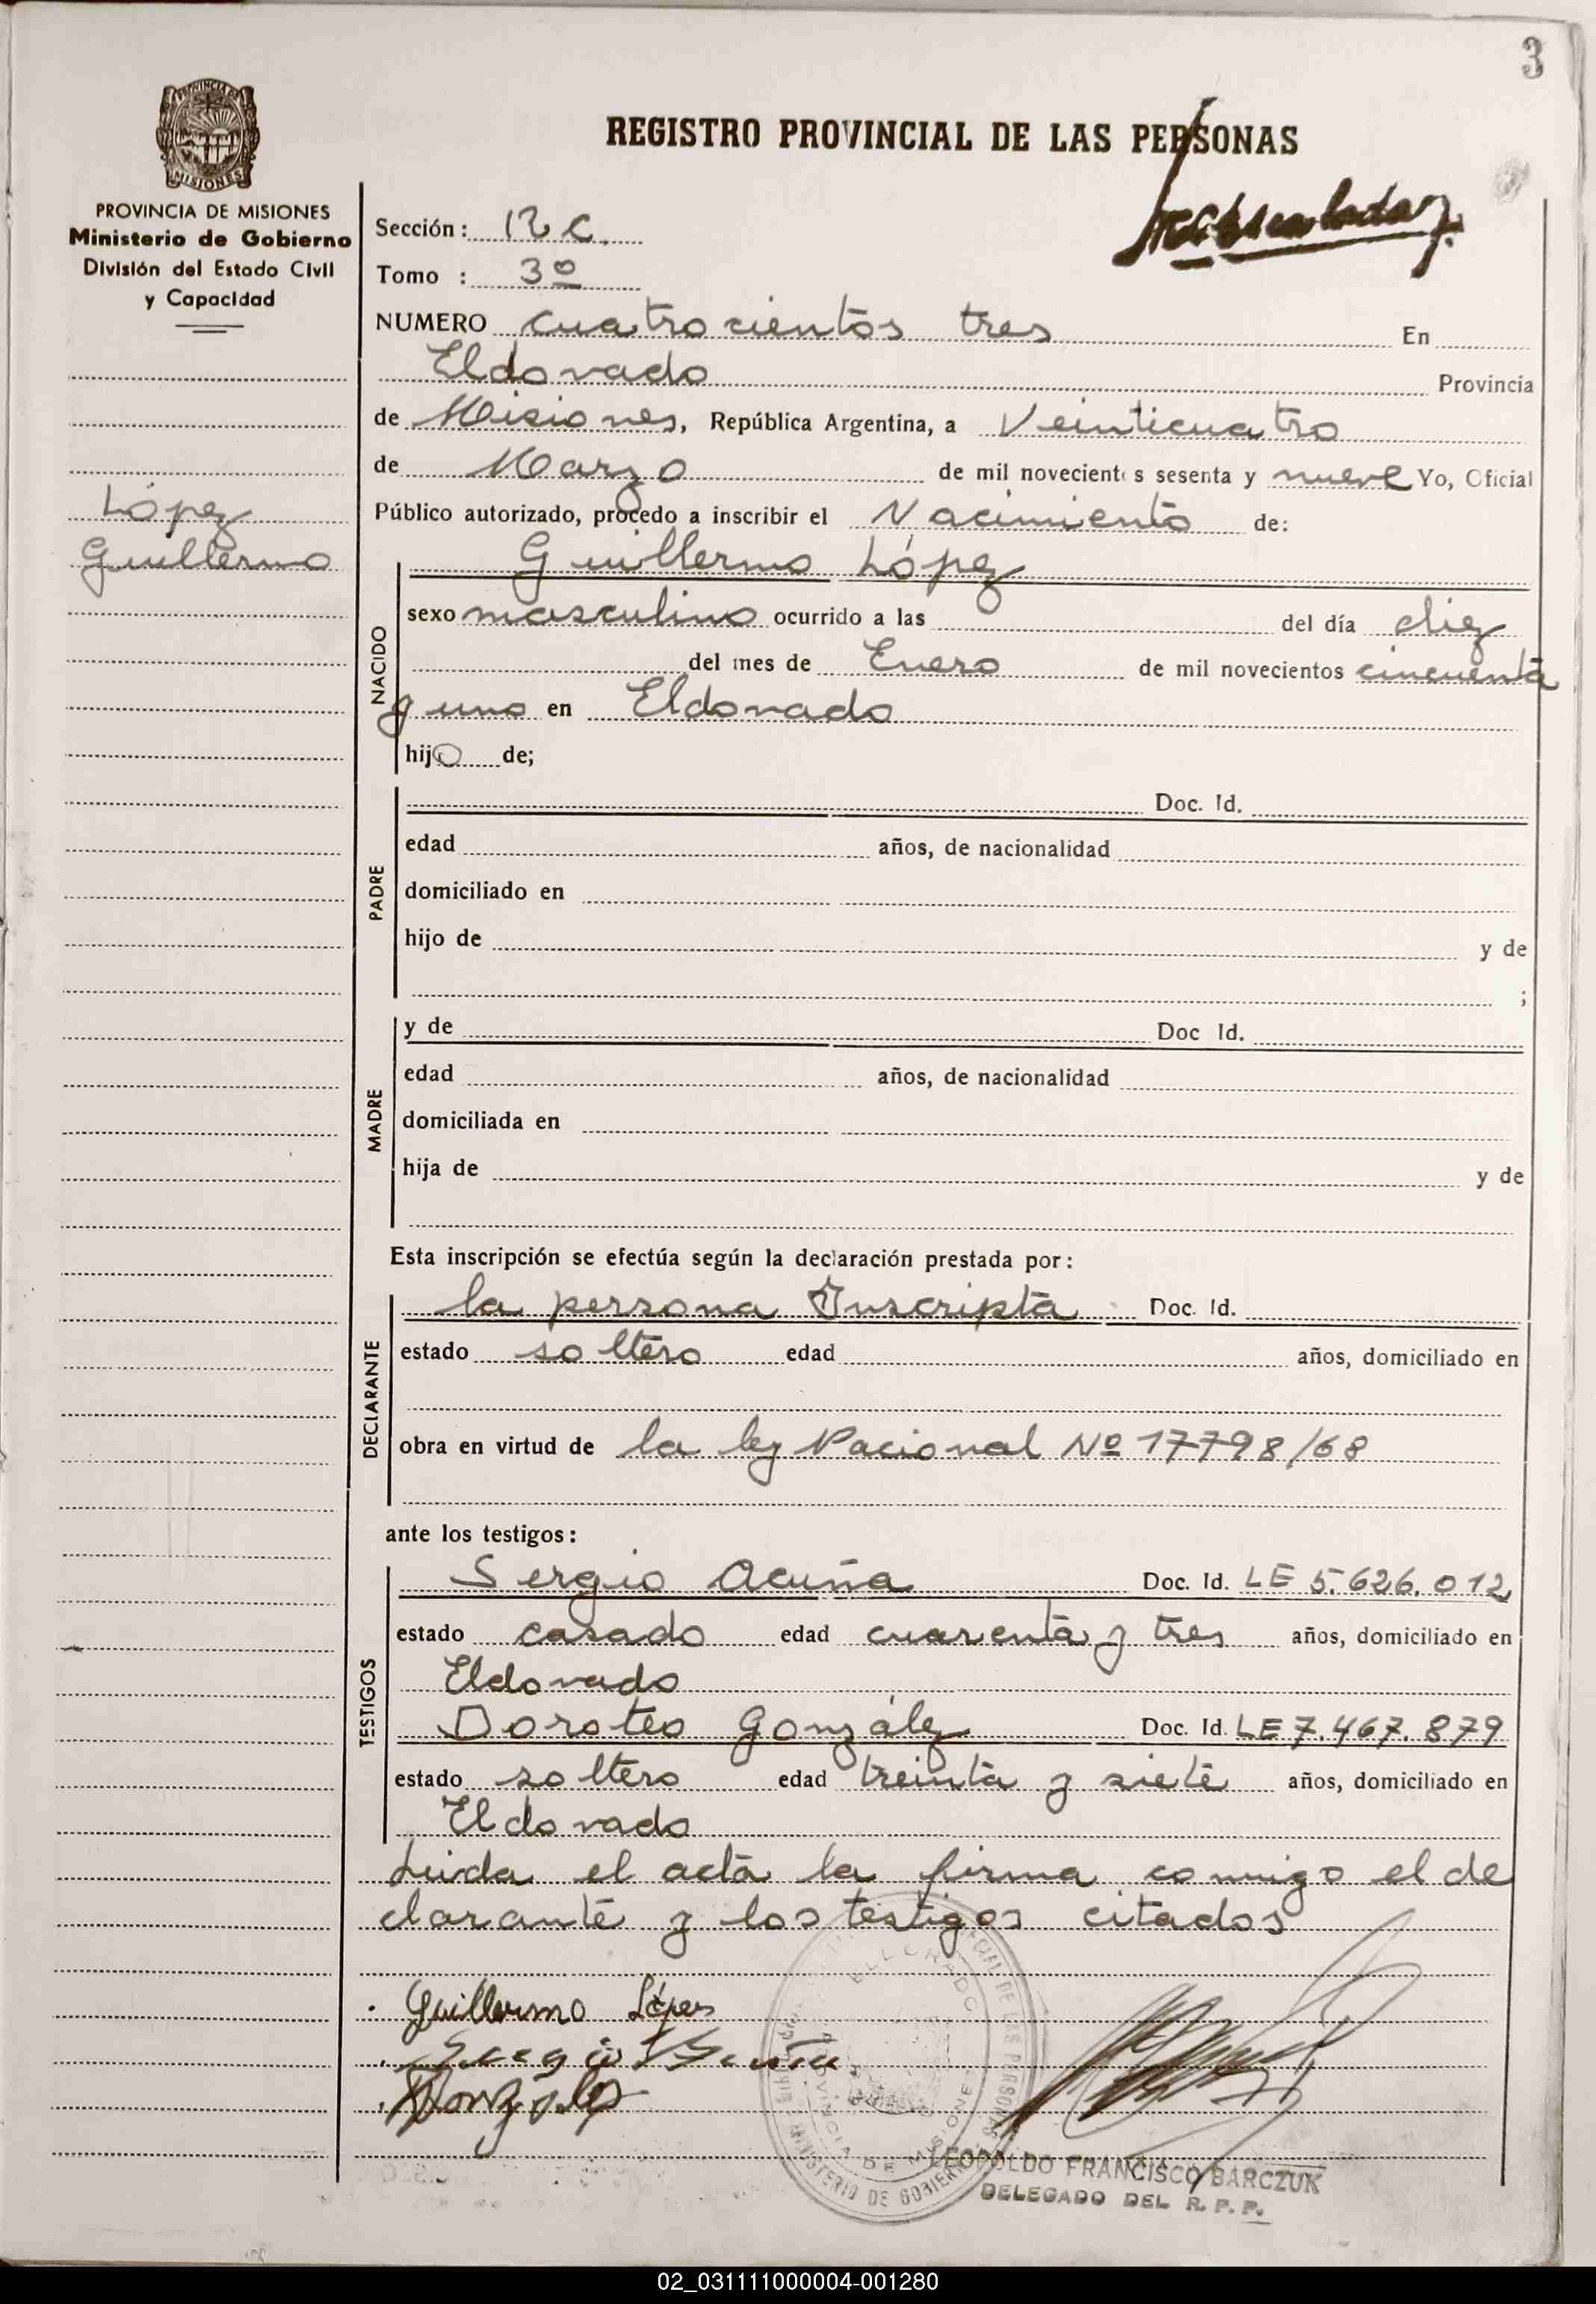 3
PROVINCIA DE MISIONES
MISIONES
PROVINCIA DE MISIONES
Ministerio de Gobierno
División del Estado Civil
y Capacidad
López
Guillermo
REGISTRO PROVINCIAL DE LAS PERSONAS
Sección: R C.
Tomo : 3º
NUMERO cuatrocientos tres En
Eldorado Provincia
de Misiones, República Argentina, a Veinticuatro
de Marzo de mil novecientos sesenta y nueve Yo, Oficial
Público autorizado, procedo a inscribir el Nacimiento de:
NACIDO
Guillermo López
sexo masculino ocurrido a las del día diez
del mes de Enero de mil novecientos cincuenta
y uno en Eldorado
hijo de;
PADRE
Doc. Id.
edad años, de nacionalidad
domiciliado en
hijo de y de
;
MADRE
y de Doc Id.
edad años, de nacionalidad
domiciliada en
hija de y de
Esta inscripción se efectúa según la declaración prestada por:
DECLARANTE
la persona Inscripta Doc. Id.
estado soltero edad años, domiciliado en
obra en virtud de la ley Nacional Nº 17798/68
ante los testigos:
TESTIGOS
Sergio Acuña Doc. Id. LE 5.626.012
estado casado edad cuarenta y tres años, domiciliado en
Eldorado
Doroteo González Doc. Id. LE 7.467.879
estado soltero edad treinta y siete años, domiciliado en
Eldorado
Leida el acta la firma conmigo el de
clarante y los testigos citados
Guillermo López
González
ELDORADO
PROVINCIA DE MISIONES
MINISTERIO DE GOBIERNO
LEOPOLDO FRANCISCO BARCZUK
DELEGADO DEL R. P. P.
02_031111000004-001280